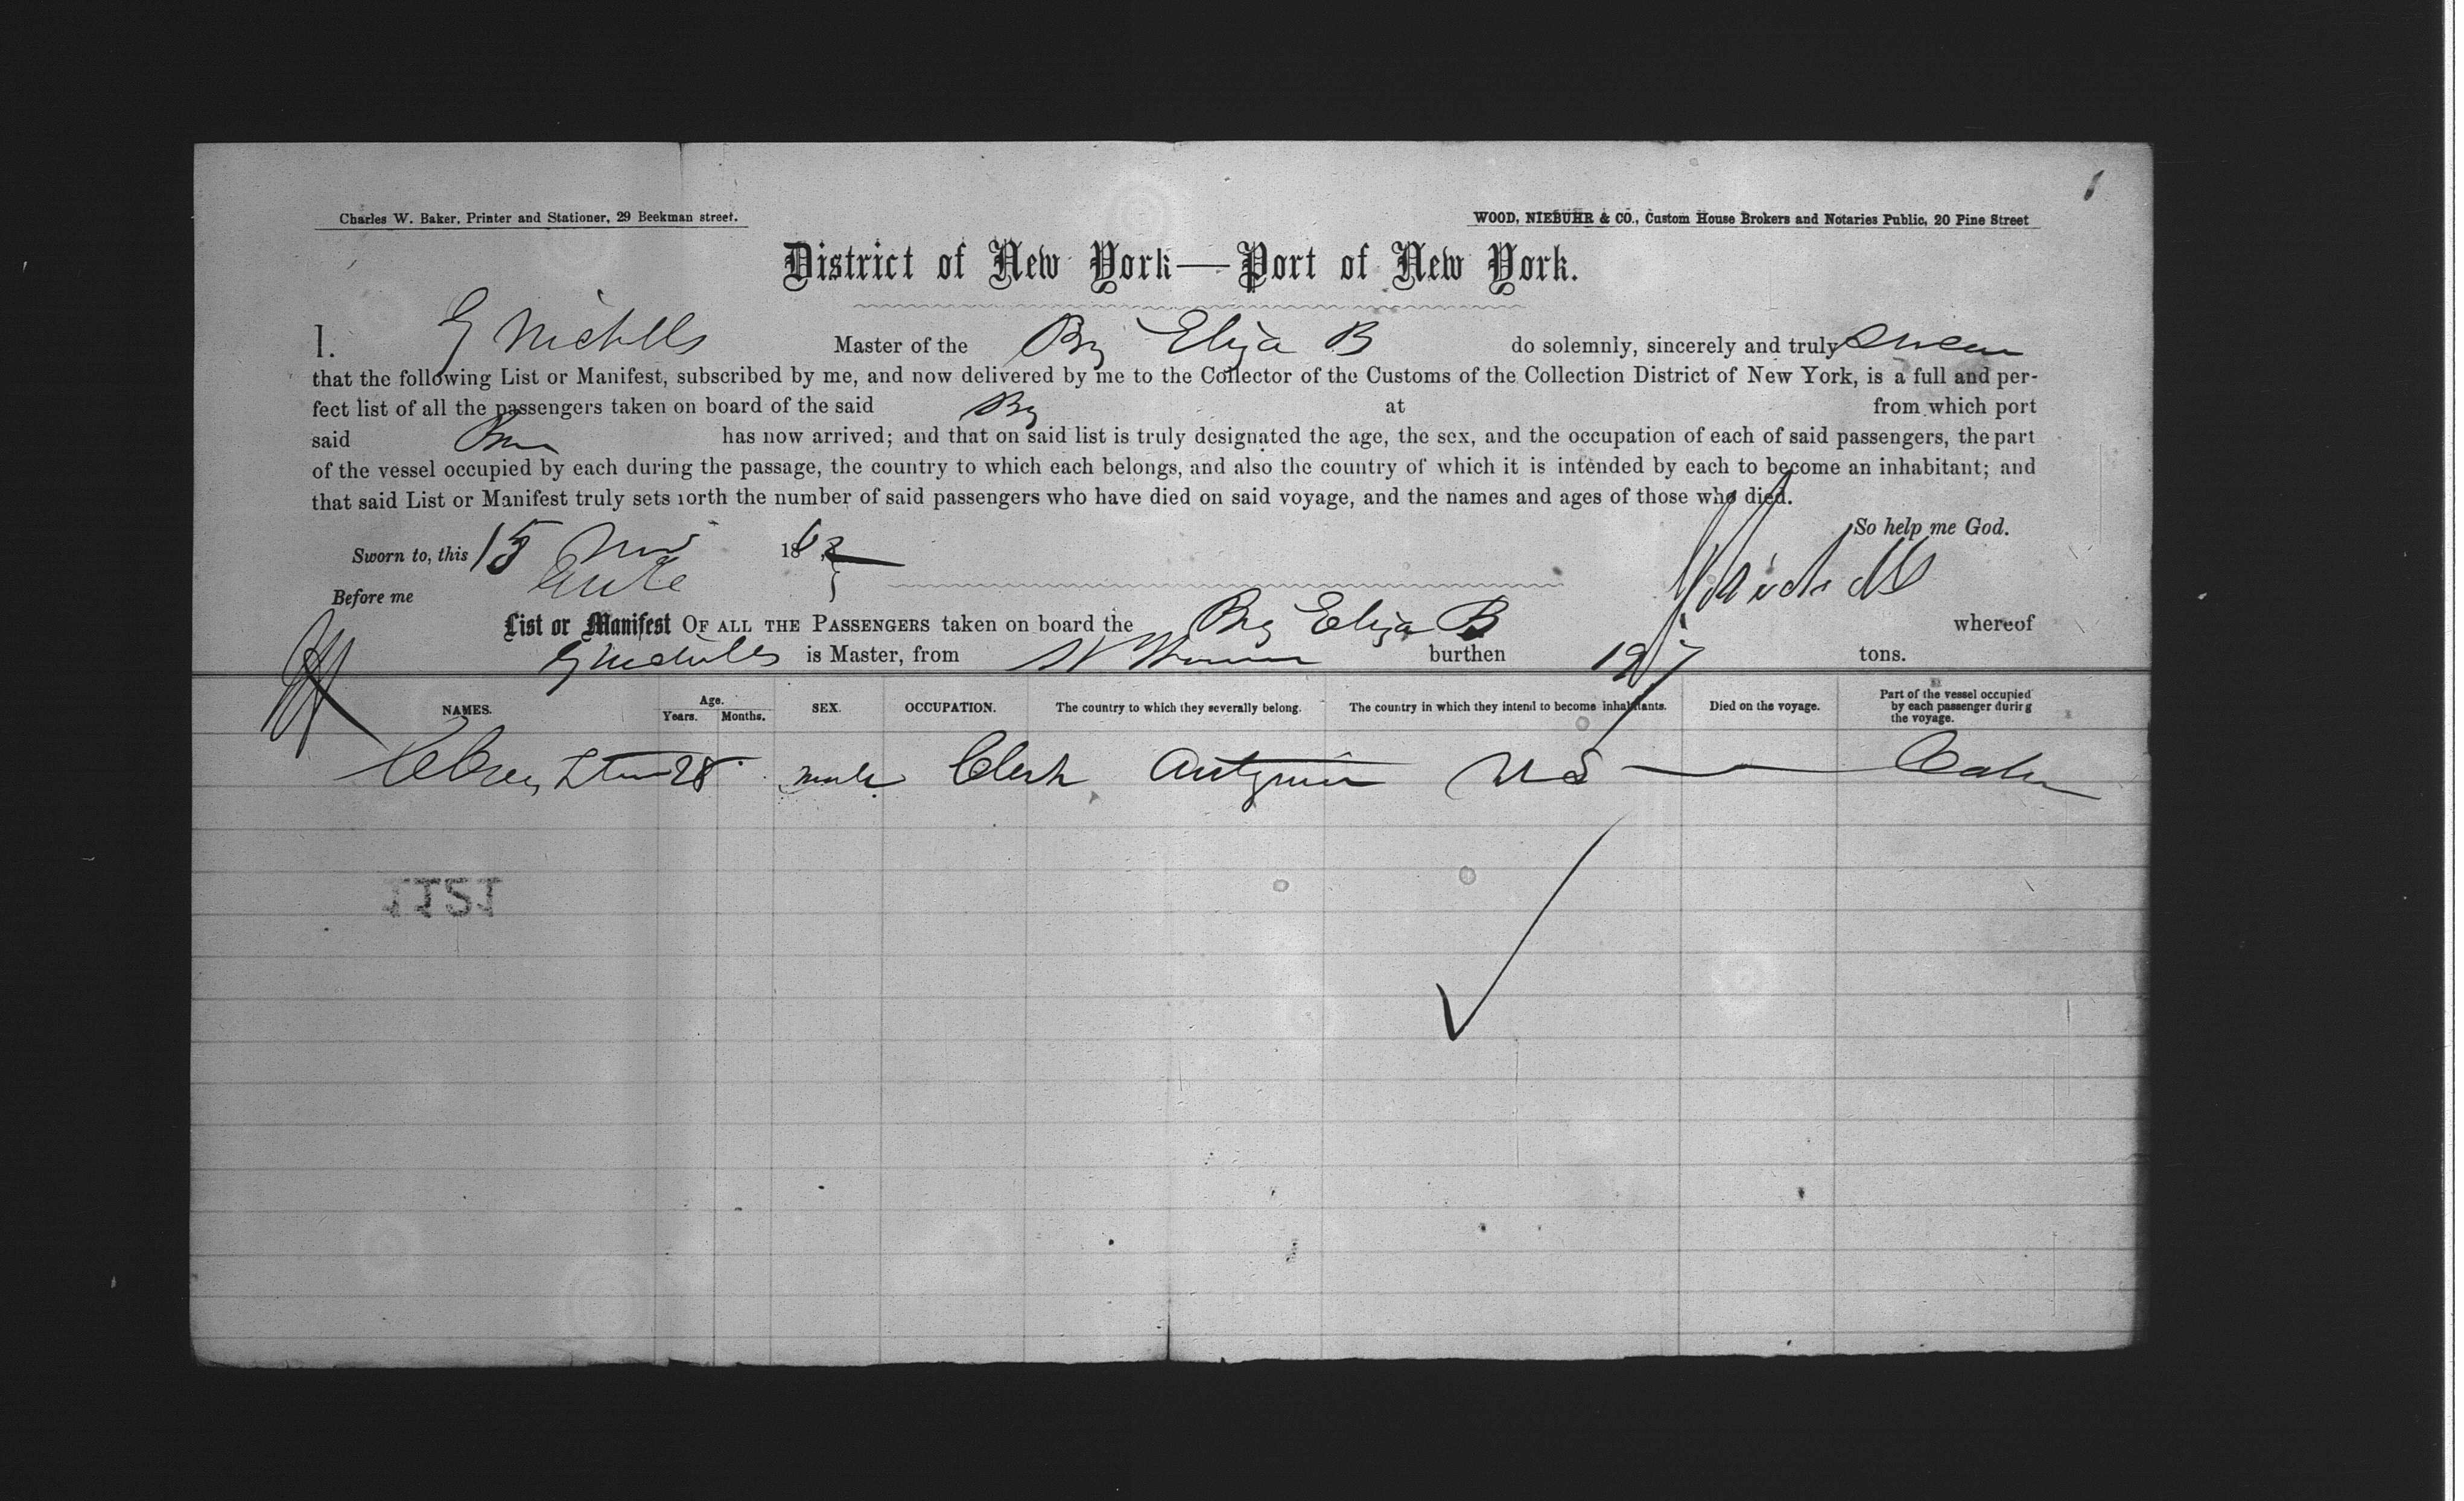 1
Charles W. Baker, Printer and Stationer, 29 Beekman street.
WOOD, NIEBUHR & CO., Custom House Brokers and Notaries Public, 20 Pine Street
District of New York—Port of New York.
I. G Nichells Master of the Brg Eliza B do solemnly, sincerely and truly swear
that the following List or Manifest, subscribed by me, and now delivered by me to the Collector of the Customs of the Collection District of New York, is a full and per-
fect list of all the passengers taken on board of the said Brg at from which port
said has now arrived; and that on said list is truly designated the age, the sex, and the occupation of each of said passengers, the part
of the vessel occupied by each during the passage, the country to which each belongs, and also the country of which it is intended by each to become an inhabitant; and
that said List or Manifest truly sets forth the number of said passengers who have died on said voyage, and the names and ages of those who died.
So help me God.
Sworn to, this 15 Nov 186
Before me
List or Manifest OF ALL THE PASSENGERS taken on board the Brg Eliza B whereof
G Nichells is Master, from burthen 197 tons.
NAMES. Age. Years. Months. SEX. OCCUPATION. The country to which they severally belong. The country in which they intend to become inhabitants. Died on the voyage. Part of the vessel occupied by each passenger during the voyage.
28 male Clerk U S Cabin